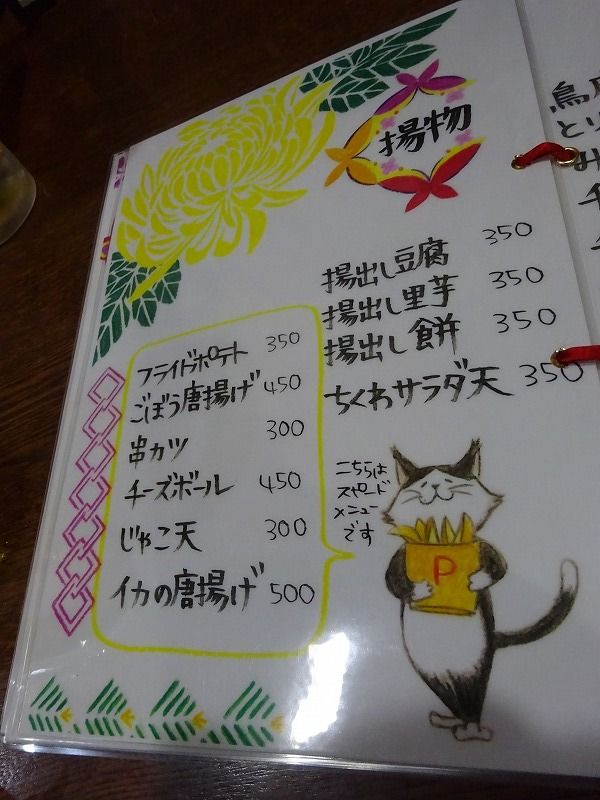 揚物
揚出し豆腐 350
揚出し里芋 350
揚出し餅 350
ちくわサラダ天 350
フライドポテト 350
ごぼう唐揚げ 450
串カツ 300
チーズボール 450
じゃこ天 300
イカの唐揚げ 500
こちらは
スピード
メニュー
です
P
鳥
とり
み